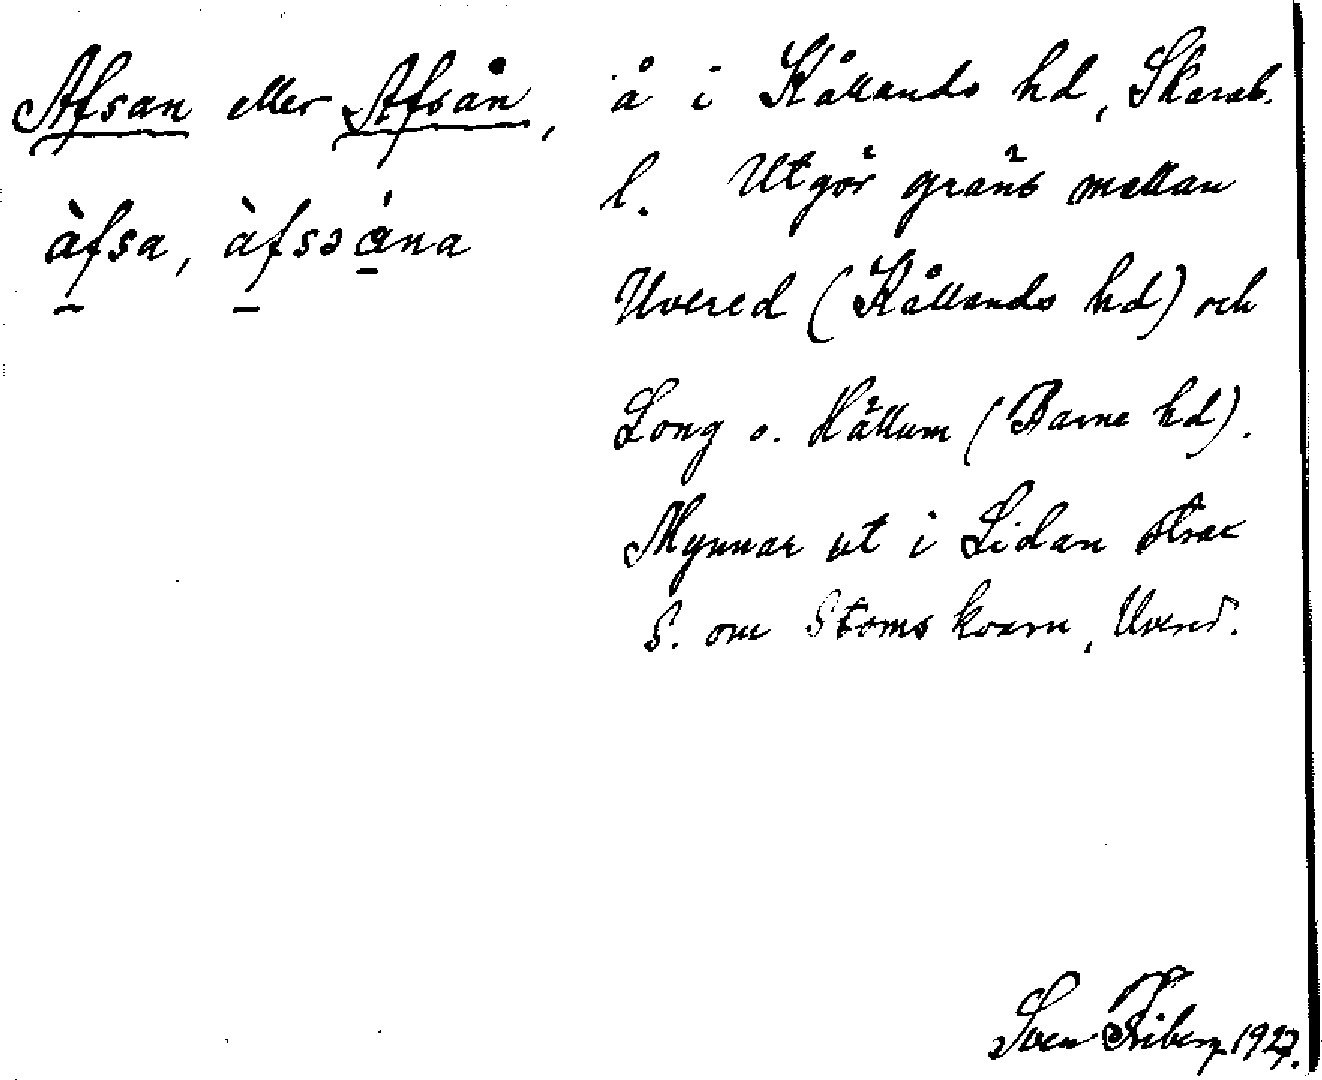 Afsan eller Afsån,
àfsa, àfsəána
å i Kållands hd, Skarab.
l. Utgör gräns mellan
Uvered (Kållands hd) och
Long o. Hällum (Barne hd).
Mynnar ut i Lidan strax
S. om Stoms kvarn, Uvered.
Sven Friberg 1927.